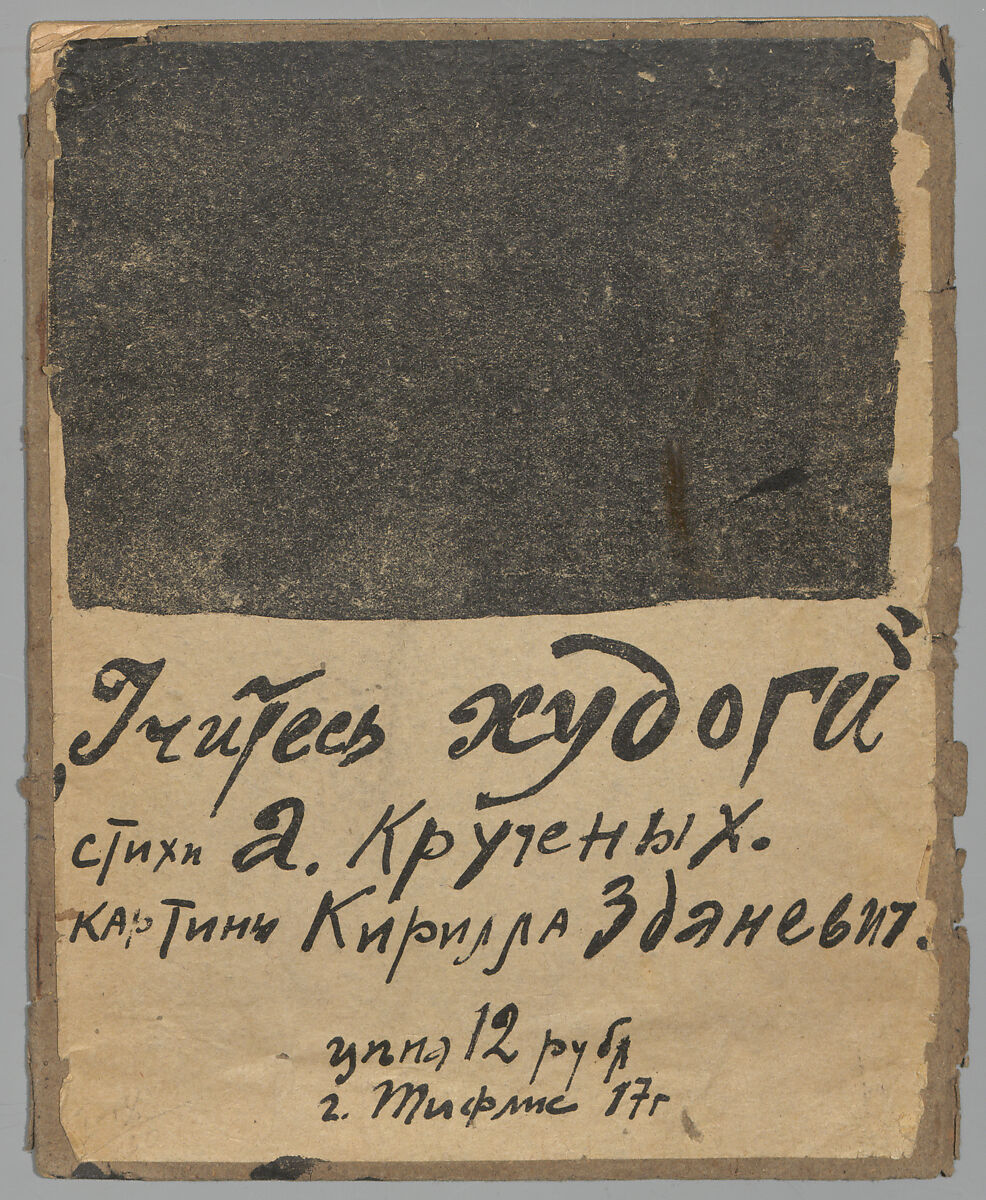 „Учитесь худоги“
стихи А. Крученых.
картины Кирилла Зданевич.
цена 12 рубл
г. Тифлис 17г